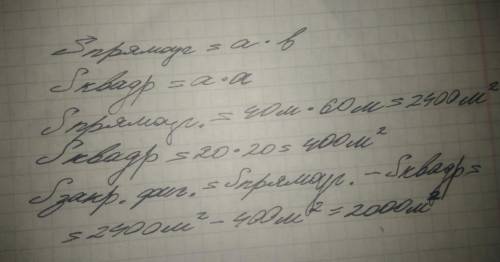 Sпрямоуг = a · b
Sквадр = a · a
Sпрямоуг. = 40м · 60м = 2400м²
Sквадр = 20 · 20 = 400м²
Sзакр. фиг. = Sпрямоуг. - Sквадр =
= 2400м² - 400м² = 2000м²